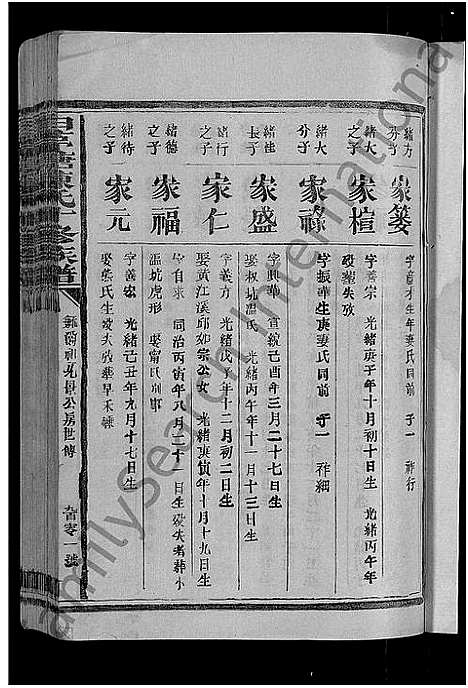 緒方
分子
家簍
生年妻氏同前 子一 祥行
緒大
之子
家楦
字善宗 光緒庚子年十月初十日生 光緒丙午年
歿葬失攷
緒大
分子
家祿
字振華生庚妻氏同前 子一 祥細
緒桂
長子
家盛
字興華 宣統己酉年三月二十七日生
娶 坑溫氏 光緒丙午年十一月十三日生
緒行
之子
家仁
字義方 光緒戊子年十二月初二日生
娶黃江溪邱如宗公女 光緒庚寅年十月十九日生
緒德
之子
家福
字自來 同治丙寅年八月二十一日生歿失考葬小
溫坑虎形 娶甯氏別
緒待
之子
家元
字義宏 光緒己丑年九月十七日生
娶 氏生歿失攷葬早禾
氏十修族譜
公房世傳
九百零一號
amilySearch International